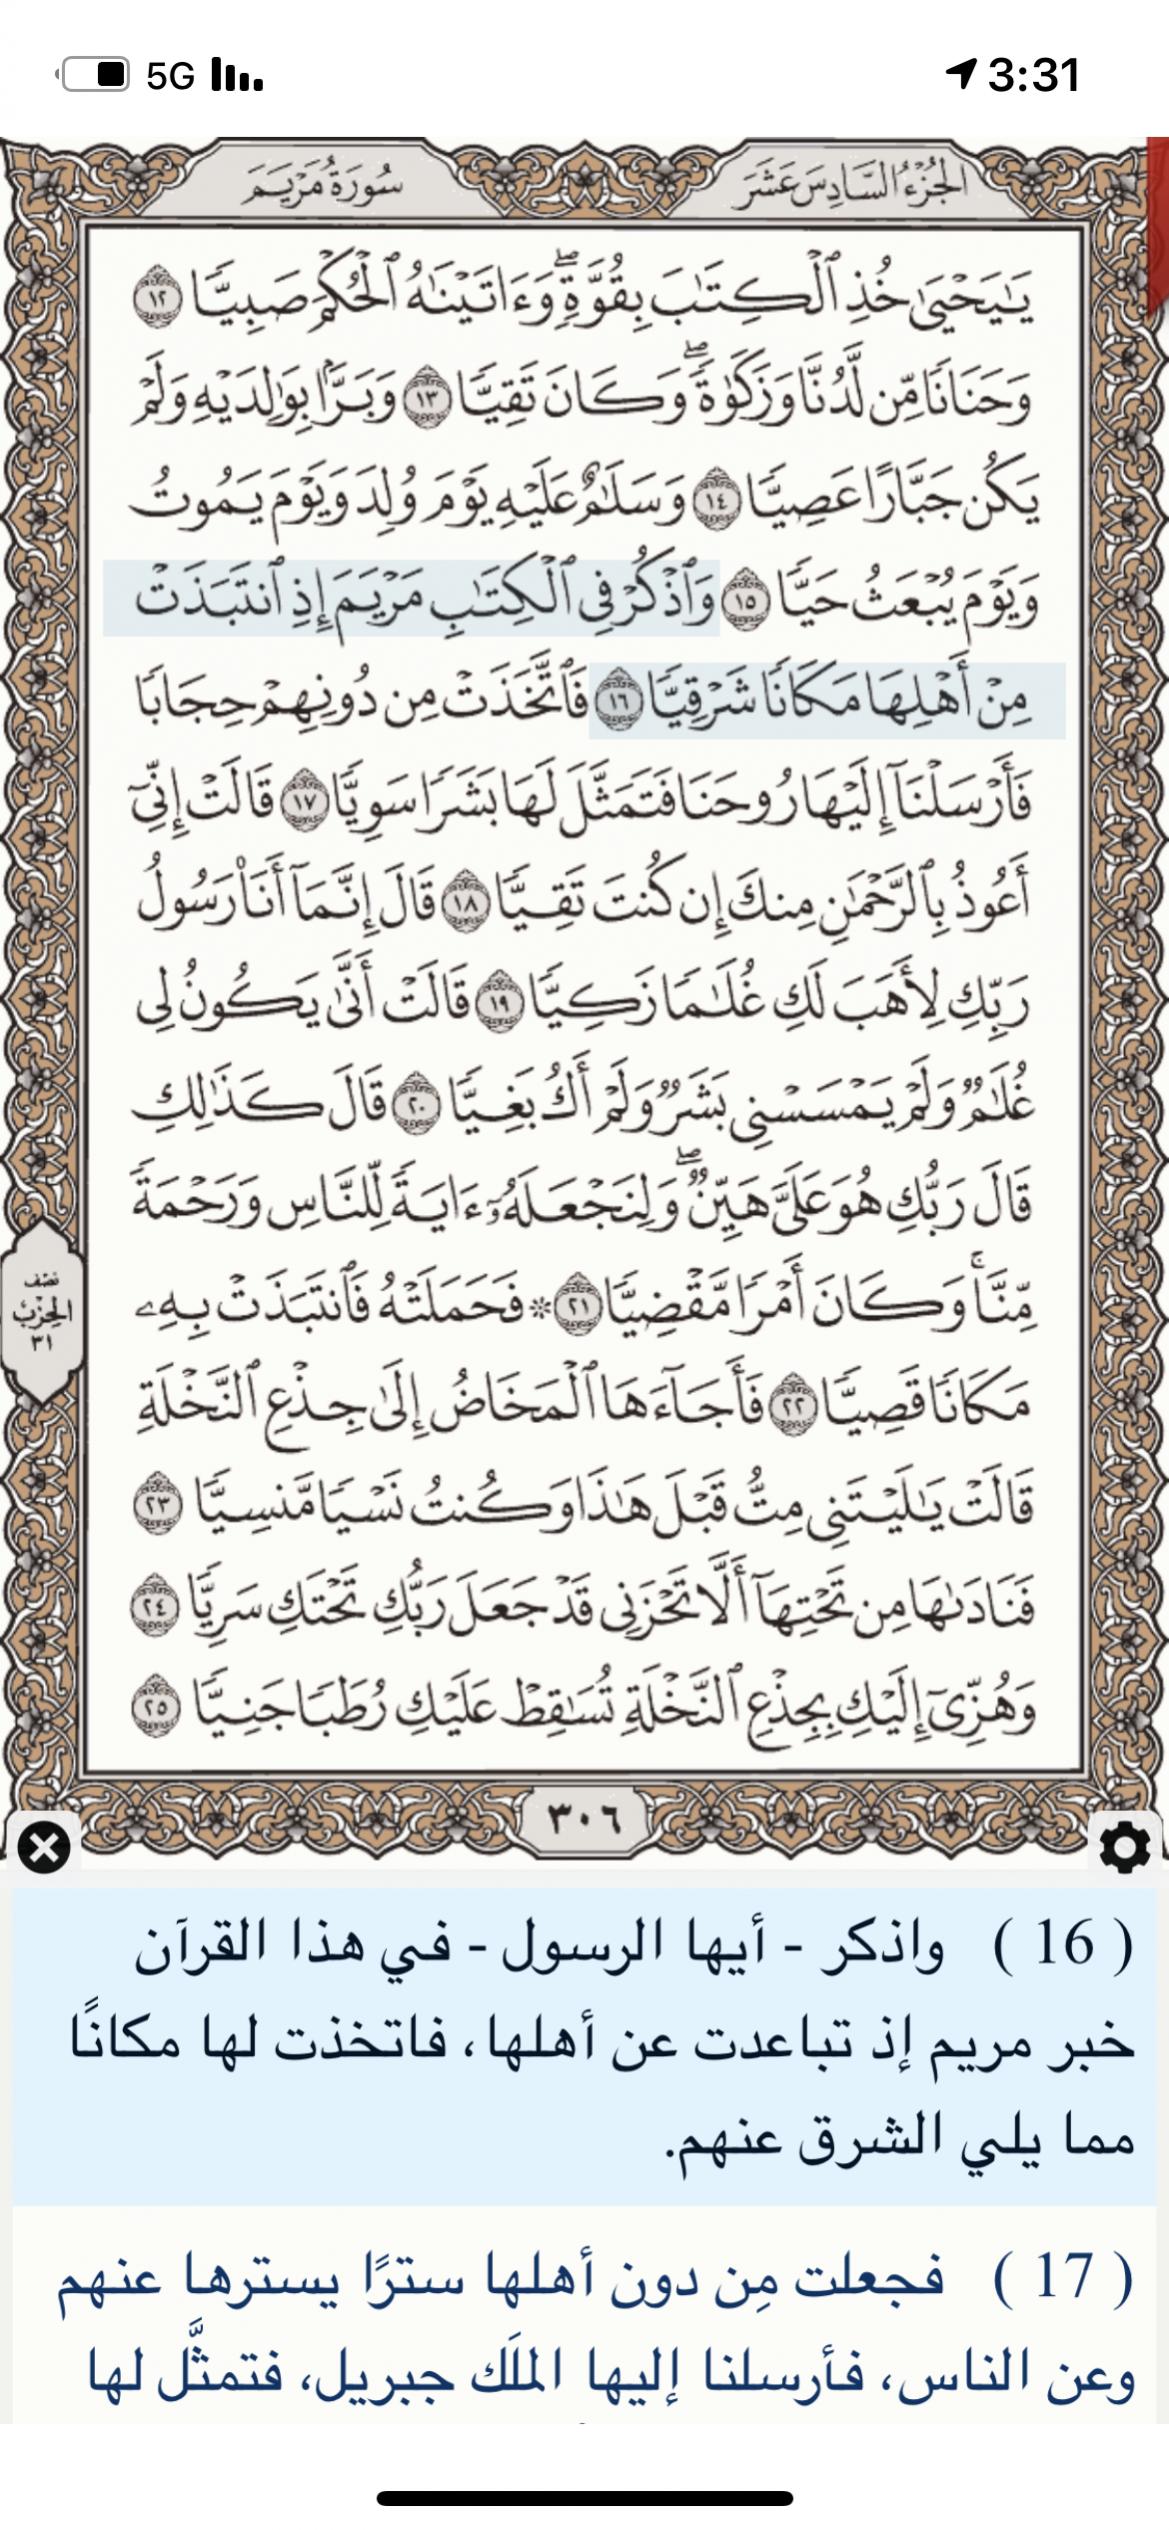 5G
3:31
الجُزْءُ السَّادِسَ عَشَرَ
سُورَةُ مَرْيَمَ
يَٰيَحۡيَىٰ خُذِ ٱلۡكِتَٰبَ بِقُوَّةٖۖ وَءَاتَيۡنَٰهُ ٱلۡحُكۡمَ صَبِيّٗا ١٢
وَحَنَانٗا مِّن لَّدُنَّا وَزَكَوٰةٗۖ وَكَانَ تَقِيّٗا ١٣ وَبَرَّۢا بِوَٰلِدَيۡهِ وَلَمۡ
يَكُن جَبَّارًا عَصِيّٗا ١٤ وَسَلَٰمٌ عَلَيۡهِ يَوۡمَ وُلِدَ وَيَوۡمَ يَمُوتُ
وَيَوۡمَ يُبۡعَثُ حَيّٗا ١٥ وَٱذۡكُرۡ فِي ٱلۡكِتَٰبِ مَرۡيَمَ إِذِ ٱنتَبَذَتۡ
مِنۡ أَهۡلِهَا مَكَانٗا شَرۡقِيّٗا ١٦ فَٱتَّخَذَتۡ مِن دُونِهِمۡ حِجَابٗا
فَأَرۡسَلۡنَآ إِلَيۡهَا رُوحَنَا فَتَمَثَّلَ لَهَا بَشَرٗا سَوِيّٗا ١٧ قَالَتۡ إِنِّيٓ
أَعُوذُ بِٱلرَّحۡمَٰنِ مِنكَ إِن كُنتَ تَقِيّٗا ١٨ قَالَ إِنَّمَآ أَنَا۠ رَسُولُ
رَبِّكِ لِأَهَبَ لَكِ غُلَٰمٗا زَكِيّٗا ١٩ قَالَتۡ أَنَّىٰ يَكُونُ لِي
غُلَٰمٞ وَلَمۡ يَمۡسَسۡنِي بَشَرٞ وَلَمۡ أَكُ بَغِيّٗا ٢٠ قَالَ كَذَٰلِكِ
قَالَ رَبُّكِ هُوَ عَلَيَّ هَيِّنٞۖ وَلِنَجۡعَلَهُۥٓ ءَايَةٗ لِّلنَّاسِ وَرَحۡمَةٗ
مِّنَّاۚ وَكَانَ أَمۡرٗا مَّقۡضِيّٗا ٢١ ۞ فَحَمَلَتۡهُ فَٱنتَبَذَتۡ بِهِۦ
مَكَانٗا قَصِيّٗا ٢٢ فَأَجَآءَهَا ٱلۡمَخَاضُ إِلَىٰ جِذۡعِ ٱلنَّخۡلَةِ
قَالَتۡ يَٰلَيۡتَنِي مِتُّ قَبۡلَ هَٰذَا وَكُنتُ نَسۡيٗا مَّنسِيّٗا ٢٣
فَنَادَىٰهَا مِن تَحۡتِهَآ أَلَّا تَحۡزَنِي قَدۡ جَعَلَ رَبُّكِ تَحۡتَكِ سَرِيّٗا ٢٤
وَهُزِّيٓ إِلَيۡكِ بِجِذۡعِ ٱلنَّخۡلَةِ تُسَٰقِطۡ عَلَيۡكِ رُطَبٗا جَنِيّٗا ٢٥
نصف
الحزب
٣١
٣٠٦
( 16 ) واذكر - أيها الرسول - في هذا القرآن
خبر مريم إذ تباعدت عن أهلها، فاتخذت لها مكانًا
مما يلي الشرق عنهم.
( 17 ) فجعلت مِن دون أهلها سترًا يسترها عنهم
وعن الناس، فأرسلنا إليها الملَك جبريل، فتمثَّل لها